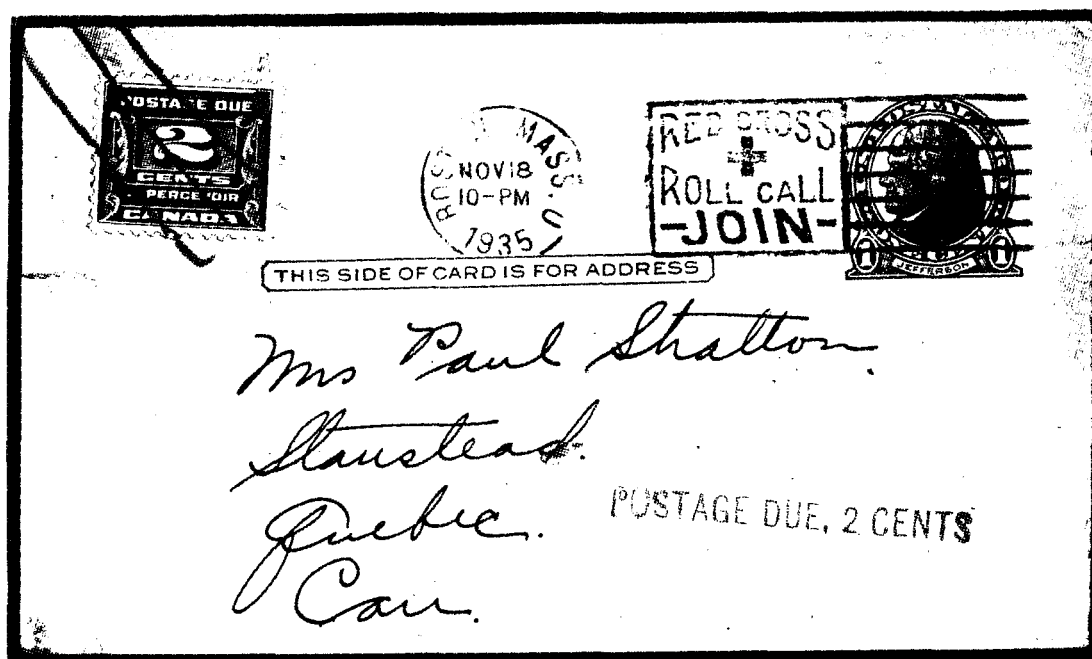 POSTAGE DUE
2
CENTS
PERCEVOIR
CANADA
BOSTON MASS. U
NOV 18
10-PM
1935
RED CROSS
ROLL CALL
-JOIN-
1 JEFFERSON 1
THIS SIDE OF CARD IS FOR ADDRESS
Mrs Paul Stratton.
Stanstead.
Quebec.
Can.
POSTAGE DUE, 2 CENTS